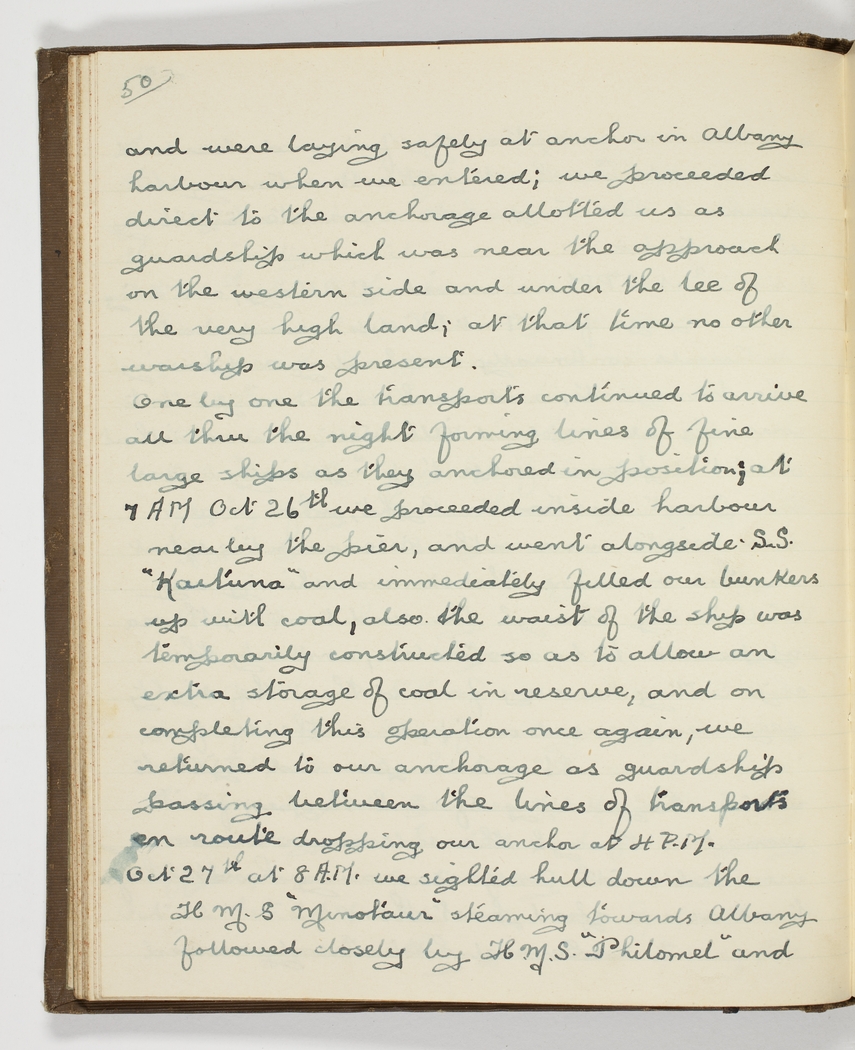 50
and were laying safely at anchor in Albany
harbour when we entered; we proceeded
direct to the anchorage allotted us as
guardship which was near the approach
on the western side and under the lee of
the very high land; at that time no other
warship was present.
One by one the transports continued to arrive
all thru the night forming lines of fine
large ships as they anchored in position; at
7 AM Oct 26th we proceeded inside harbour
near by the pier, and went alongside S.S.
"Kaituna" and immediately filled our bunkers
up with coal, also the waist of the ship was
temporarily constructed so as to allow an
extra storage of coal in reserve, and on
completing this operation once again, we
returned to our anchorage as guardship
passing between the lines of transports
en route dropping our anchor at 4 P.M.
Oct 27th at 8 A.M. we sighted hull down the
H M. S "Minotaur" steaming towards Albany
followed closely by H M.S. "Philomel" and